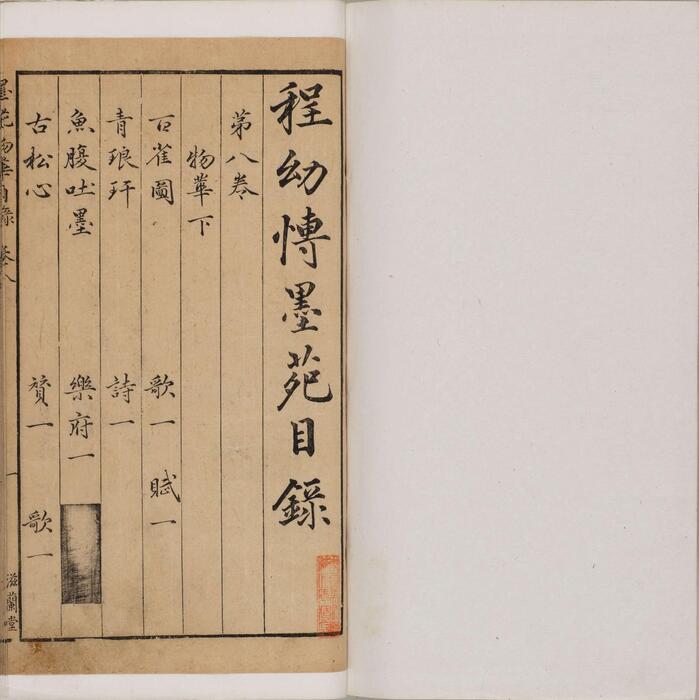 程幼博墨苑目錄
第八卷
物華下
百雀圖 歌一 賦一
青琅玕 詩一
魚腹吐墨 樂府一
古松心 贊一 歌一
墨苑物華目錄 卷八 一 滋蘭堂